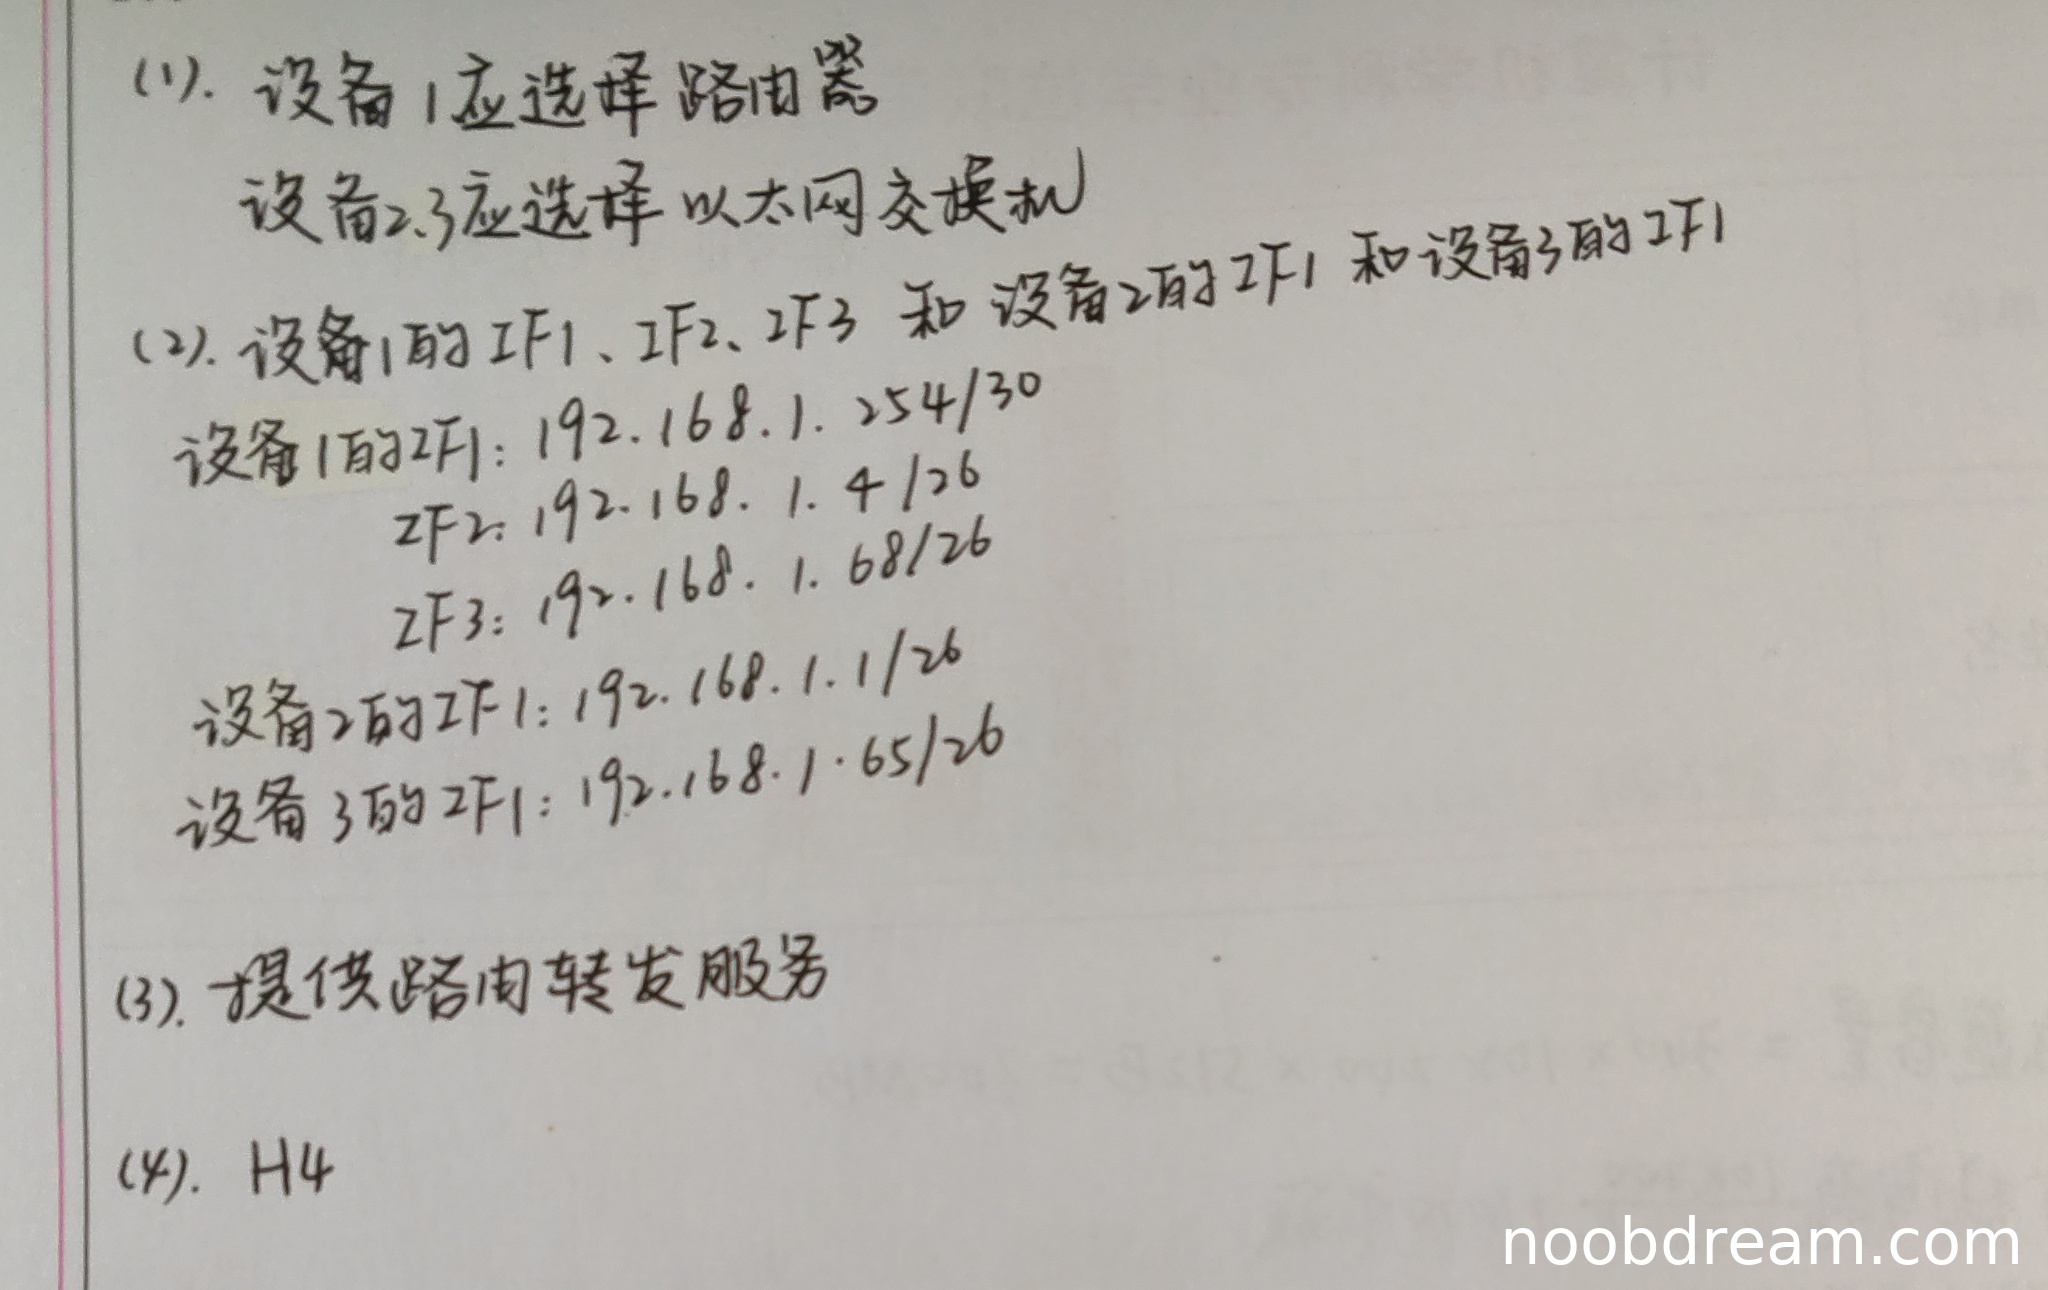 (1). 设备1应选择路由器
设备2、3应选择以太网交换机
(2). 设备1的IF1、IF2、IF3和设备2的IF1和设备3的IF1
设备1的IF1: 192.168.1.254/30
IF2: 192.168.1.4/26
IF3: 192.168.1.68/26
设备2的IF1: 192.168.1.1/26
设备3的IF1: 192.168.1.65/26
(3). 提供路由转发服务
(4). H4
noobdream.com